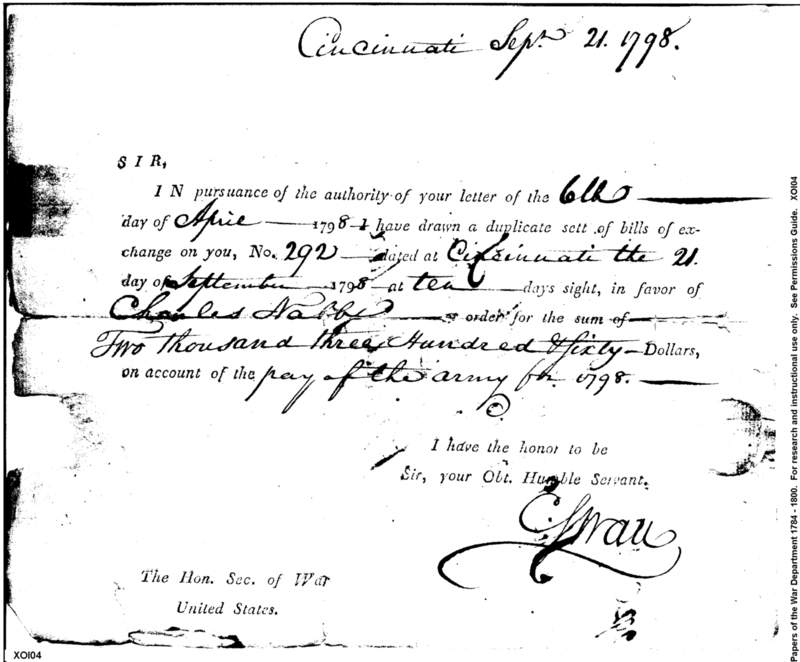 Cincinnati Sept. 21. 1798.
SIR,
IN pursuance of the authority of your letter of the 6th
day of April 1798 I have drawn a duplicate sett of bills of ex-
change on you, No. 292 dated at Cincinnati the 21.
day of September 1798 at ten days sight, in favor of
Charles Nabb or order for the sum of
Two thousand three Hundred & sixty Dollars,
on account of the pay of the army for 1798.
I have the honor to be
Sir, your Obt. Humble Servant.
C Swan
The Hon. Sec. of War
United States.
XOI04
Papers of the War Department 1784 - 1800. For research and instructional use only. See Permissions Guide. XOI04